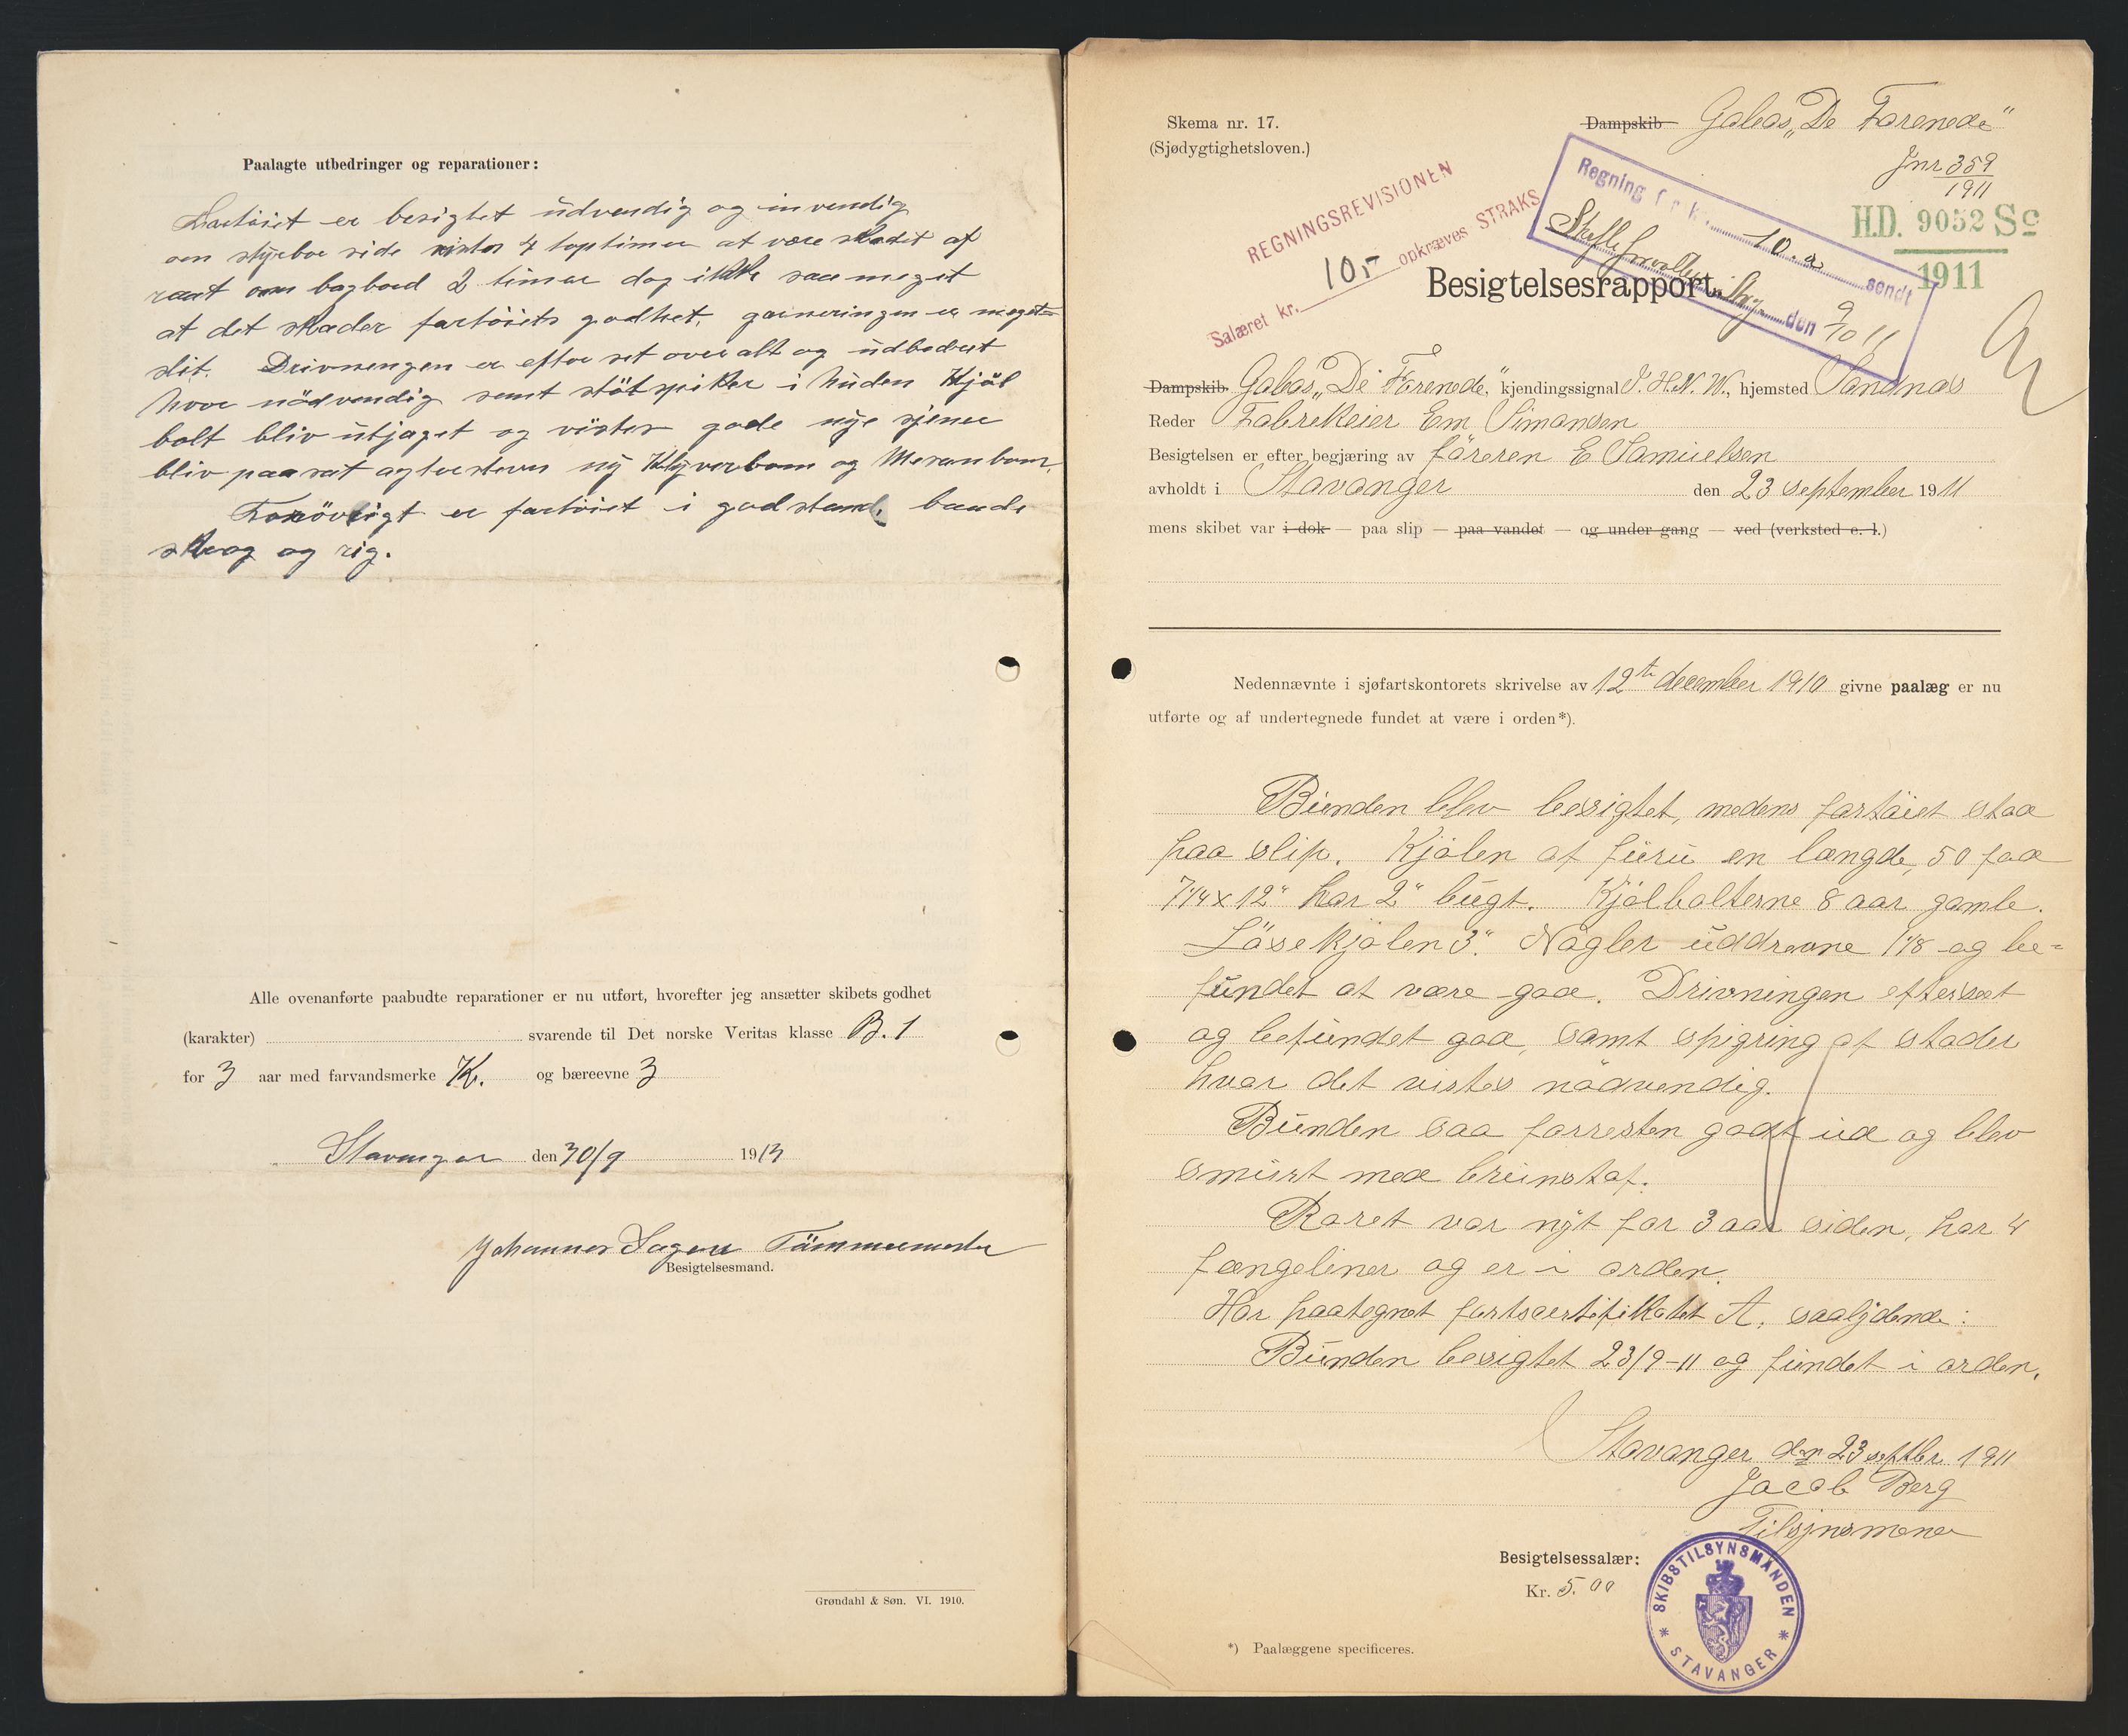 Paalagte utbedringer og reparationer:
Fartöiet er besigtet udvendig og invendig
om styrbor side vistes 4 toptimer at være skadet af
raat om bagbord 2 timer dog ikke saa meget
at det skader fartöiets godhet, garneringen er meget
slit. Drivningen er efter set over alt og udbedret
hvor nödvendig samt stötspiker i huden Kjöl
bolt bliv utjaget og vistes gode nye sjener
bliv paasat agterstevn ny Klyverbom og Mesanbom,
Forövrigt er fartöiet i god stand, baade
skrog og rig.
Alle ovenanførte paabudte reparationer er nu utført, hvorefter jeg ansætter skibets godhet
(karakter) svarende til Det norske Veritas klasse B. 1
for 3 aar med farvandsmerke K. og bæreevne 3
Stavanger den 30/9 1913
Johannes Sagen Tömmermester
Besigtelsesmand.
Grøndahl & Søn. VI. 1910.
Skema nr. 17.
(Sjødygtighetsloven.)
Dampskib Galeas „De Forenede"
Jnr 359
1911
H.D. 9052 Sc
1911
REGNINGSREVISIONEN
Salæret kr. 10,- opkræves STRAKS
Regning f r kr. 10.- sendt
den 9/10 11
Besigtelsesrapport.
Dampskib Galeas „De Forenede", kjendingssignal J. H. N. W., hjemsted Sandnæs
Reder Fabrikeier Em Simonsen
Besigtelsen er efter begjæring av föreren E Samuelsen
avholdt i Stavanger den 23 september 1911
mens skibet var i dok — paa slip — paa vandet — og under gang — ved (verksted e. l.)
Nedennævnte i sjøfartskontorets skrivelse av 12te december 1910 givne paalæg er nu
utførte og af undertegnede fundet at være i orden*).
Bunden blev besigtet, medens fartöiet stod
paa slip. Kjölen af furu en længde, 50 fod
7 1/4 x 12" har 2" bugt. Kjölbolterne 8 aar gamle.
Lösekjölen 3". Nagler uddrevne 1 1/8 og be=
fundet at være god. Drivningen efterset
og befundet god, samt spigring af stöder
hvor det vistes nödvendig.
Bunden saa forresten godt ud og blev
smurt med brunstof.
Roret var nyt for 3 aar siden, har 4
fængeliner og er i orden.
Har paategnet fartscertifikatet A, saalydende:
Bunden besigtet 23/9-11 og fundet i orden.
Stavanger den 23 septbr 1911
Jacob Berg
Tilsynsmand
Besigtelsessalær:
Kr. 5.00
SKIBSTILSYNSMANDEN
* STAVANGER *
*) Paalæggene specificeres.